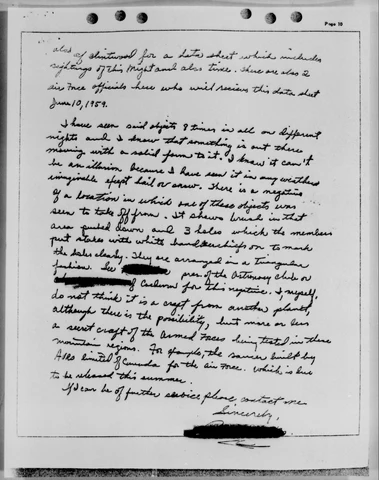 Page 10
also of Flintwood for a data sheet which includes
sightings of this night and also time. There are also 2
air Force officials here who will receive this data sheet
June 10, 1959.
I have seen said objects 8 times in all on different
nights and I know that something is out there
moving with a solid form to it. I know it can't
be an illusion because I have seen it in any weather
imaginable except hail or snow. There is a negative
of a location in which one of these objects was
seen to take off from. It shows brush in that
area pushed down and 3 holes which the members
put stakes with white handkerchiefs on to mark
the holes clearly. They are arranged in a triangular
fashion. See pres. of the Astronomy club or
of for this negative. I, myself,
do not think it is a craft from another planet,
although there is the possibility, but more or less
a secret craft of the Armed Forces being tested in these
mountain regions. For example, the saucer built by
AVRO limited of Canada for the air Force. which is due
to be released this summer.
If I can be of further service please contact me
Sincerely,